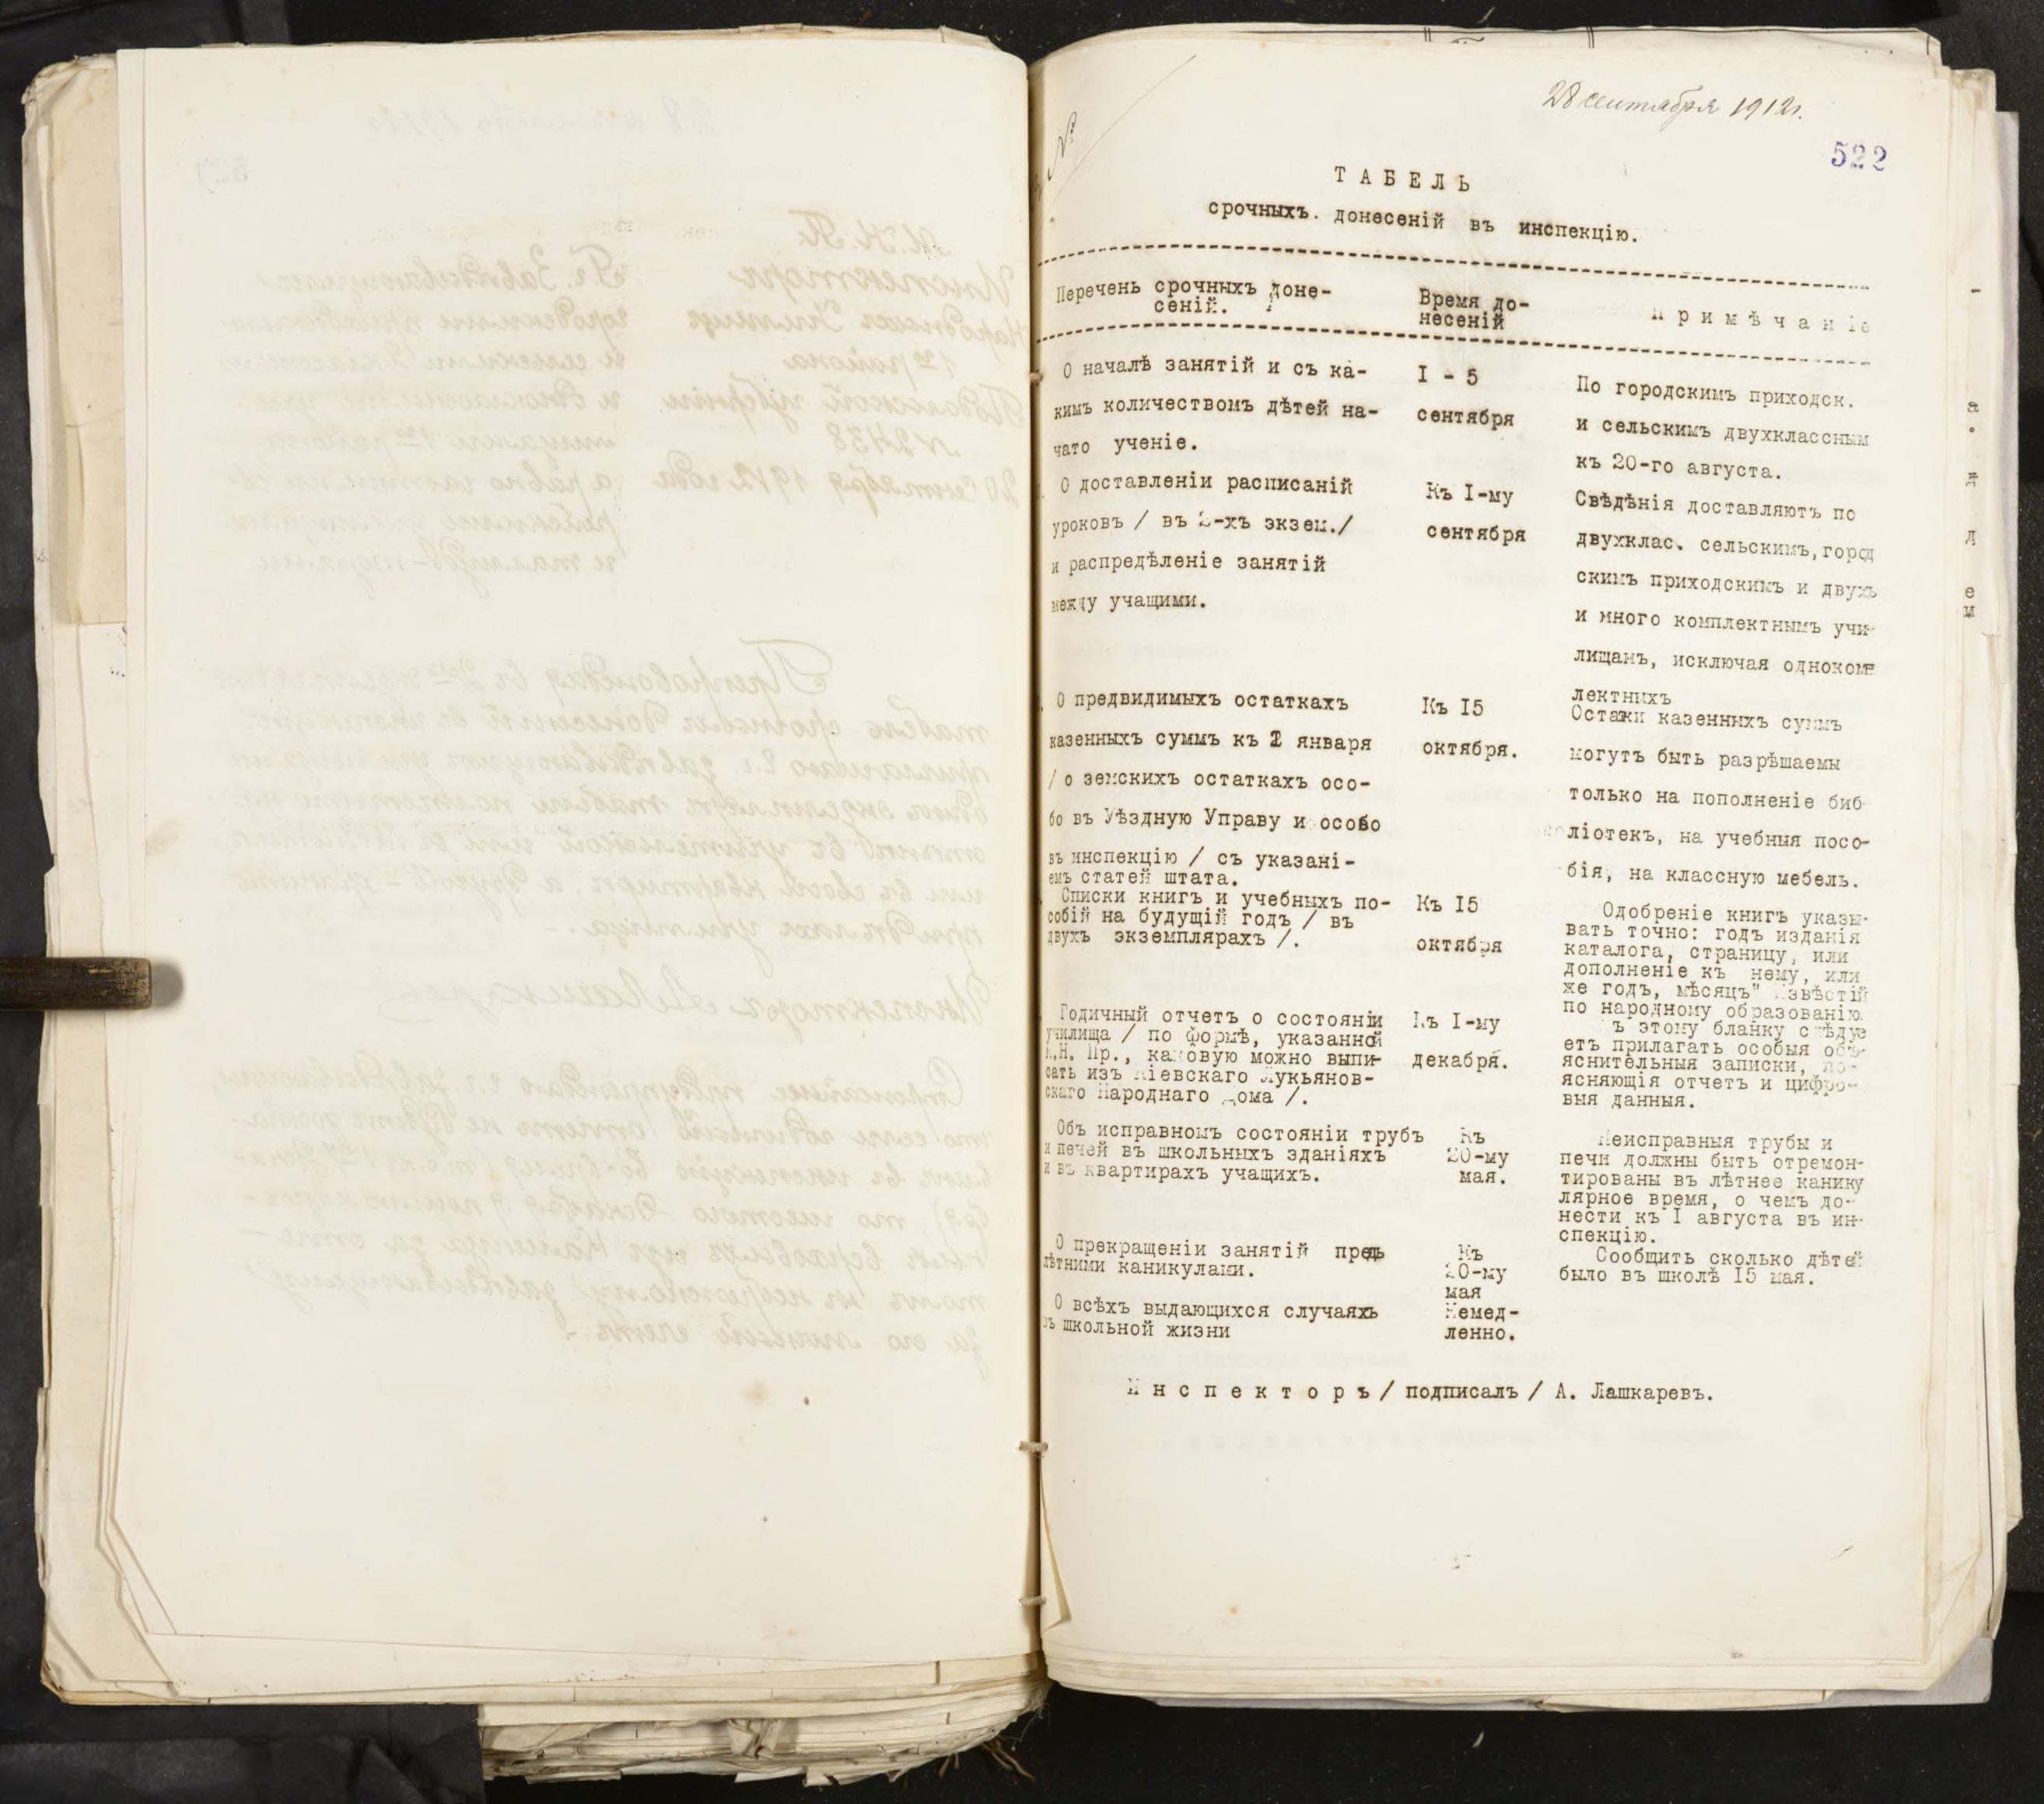 28 сентября 1912 г.
522
ТАБЕЛЬ
срочныхъ. донесеній въ инспекцію.
Перечень срочныхъ доне-
сеній.
Время до-
несеній
Примѣчаніе
О началѣ занятій и съ ка-
кимъ количествомъ дѣтей на-
чато ученіе.
I - 5
сентября
По городскимъ приходск.
и сельскимъ двухклассным
къ 20-го августа.
О доставленіи расписаній
уроковъ / въ 2-хъ экзем./
и распредѣленіе занятій
между учащими.
Къ I-му
сентября
Свѣдѣнія доставляютъ по
двухклас. сельскимъ,город
скимъ приходскимъ и двухъ
и много комплектнымъ учи-
лищамъ, исключая одноком
лектныхъ
О предвидимыхъ остаткахъ
казенныхъ суммъ къ I января
/ о земскихъ остаткахъ осо-
бо въ Уѣздную Управу и особо
въ инспекцію / съ указані-
емъ статей штата.
Къ I5
октября.
Остатки казенныхъ суммъ
могутъ быть разрѣшаемы
только на пополненіе биб-
ліотекъ, на учебныя посо-
бія, на классную мебель.
Списки книгъ и учебныхъ по-
собій на будущій годъ / въ
двухъ экземплярахъ /.
Къ I5
октября
Одобреніе книгъ указы-
вать точно: годъ изданія
каталога, страницу, или
дополненіе къ нему, или
же годъ, мѣсяцъ" Извѣстій
по народному образованію
Годичный отчетъ о состояніи
училища / по формѣ, указанной
М.Н. Пр., каковую можно выпи-
сать изъ Кіевскаго Лукьянов-
скаго Народнаго Дома /.
Къ I-му
декабря.
Къ этому бланку слѣдуе
етъ прилагать особыя объ-
яснительныя записки, по-
ясняющія отчетъ и цифро-
выя данныя.
Объ исправномъ состояніи трубъ
и печей въ школьныхъ зданіяхъ
и въ квартирахъ учащихъ.
Къ
20-му
мая.
Неисправныя трубы и
печи должны быть отремон-
тированы въ лѣтнее канику
лярное время, о чемъ до-
нести къ I августа въ ин-
спекцію.
О прекращеніи занятій предъ
лѣтними каникулами.
Къ
20-му
мая
Сообщить сколько дѣтей
было въ школѣ I5 мая.
О всѣхъ выдающихся случаяхъ
въ школьной жизни
Немед-
ленно.
Инспекторъ / подписалъ / А. Лашкаревъ.